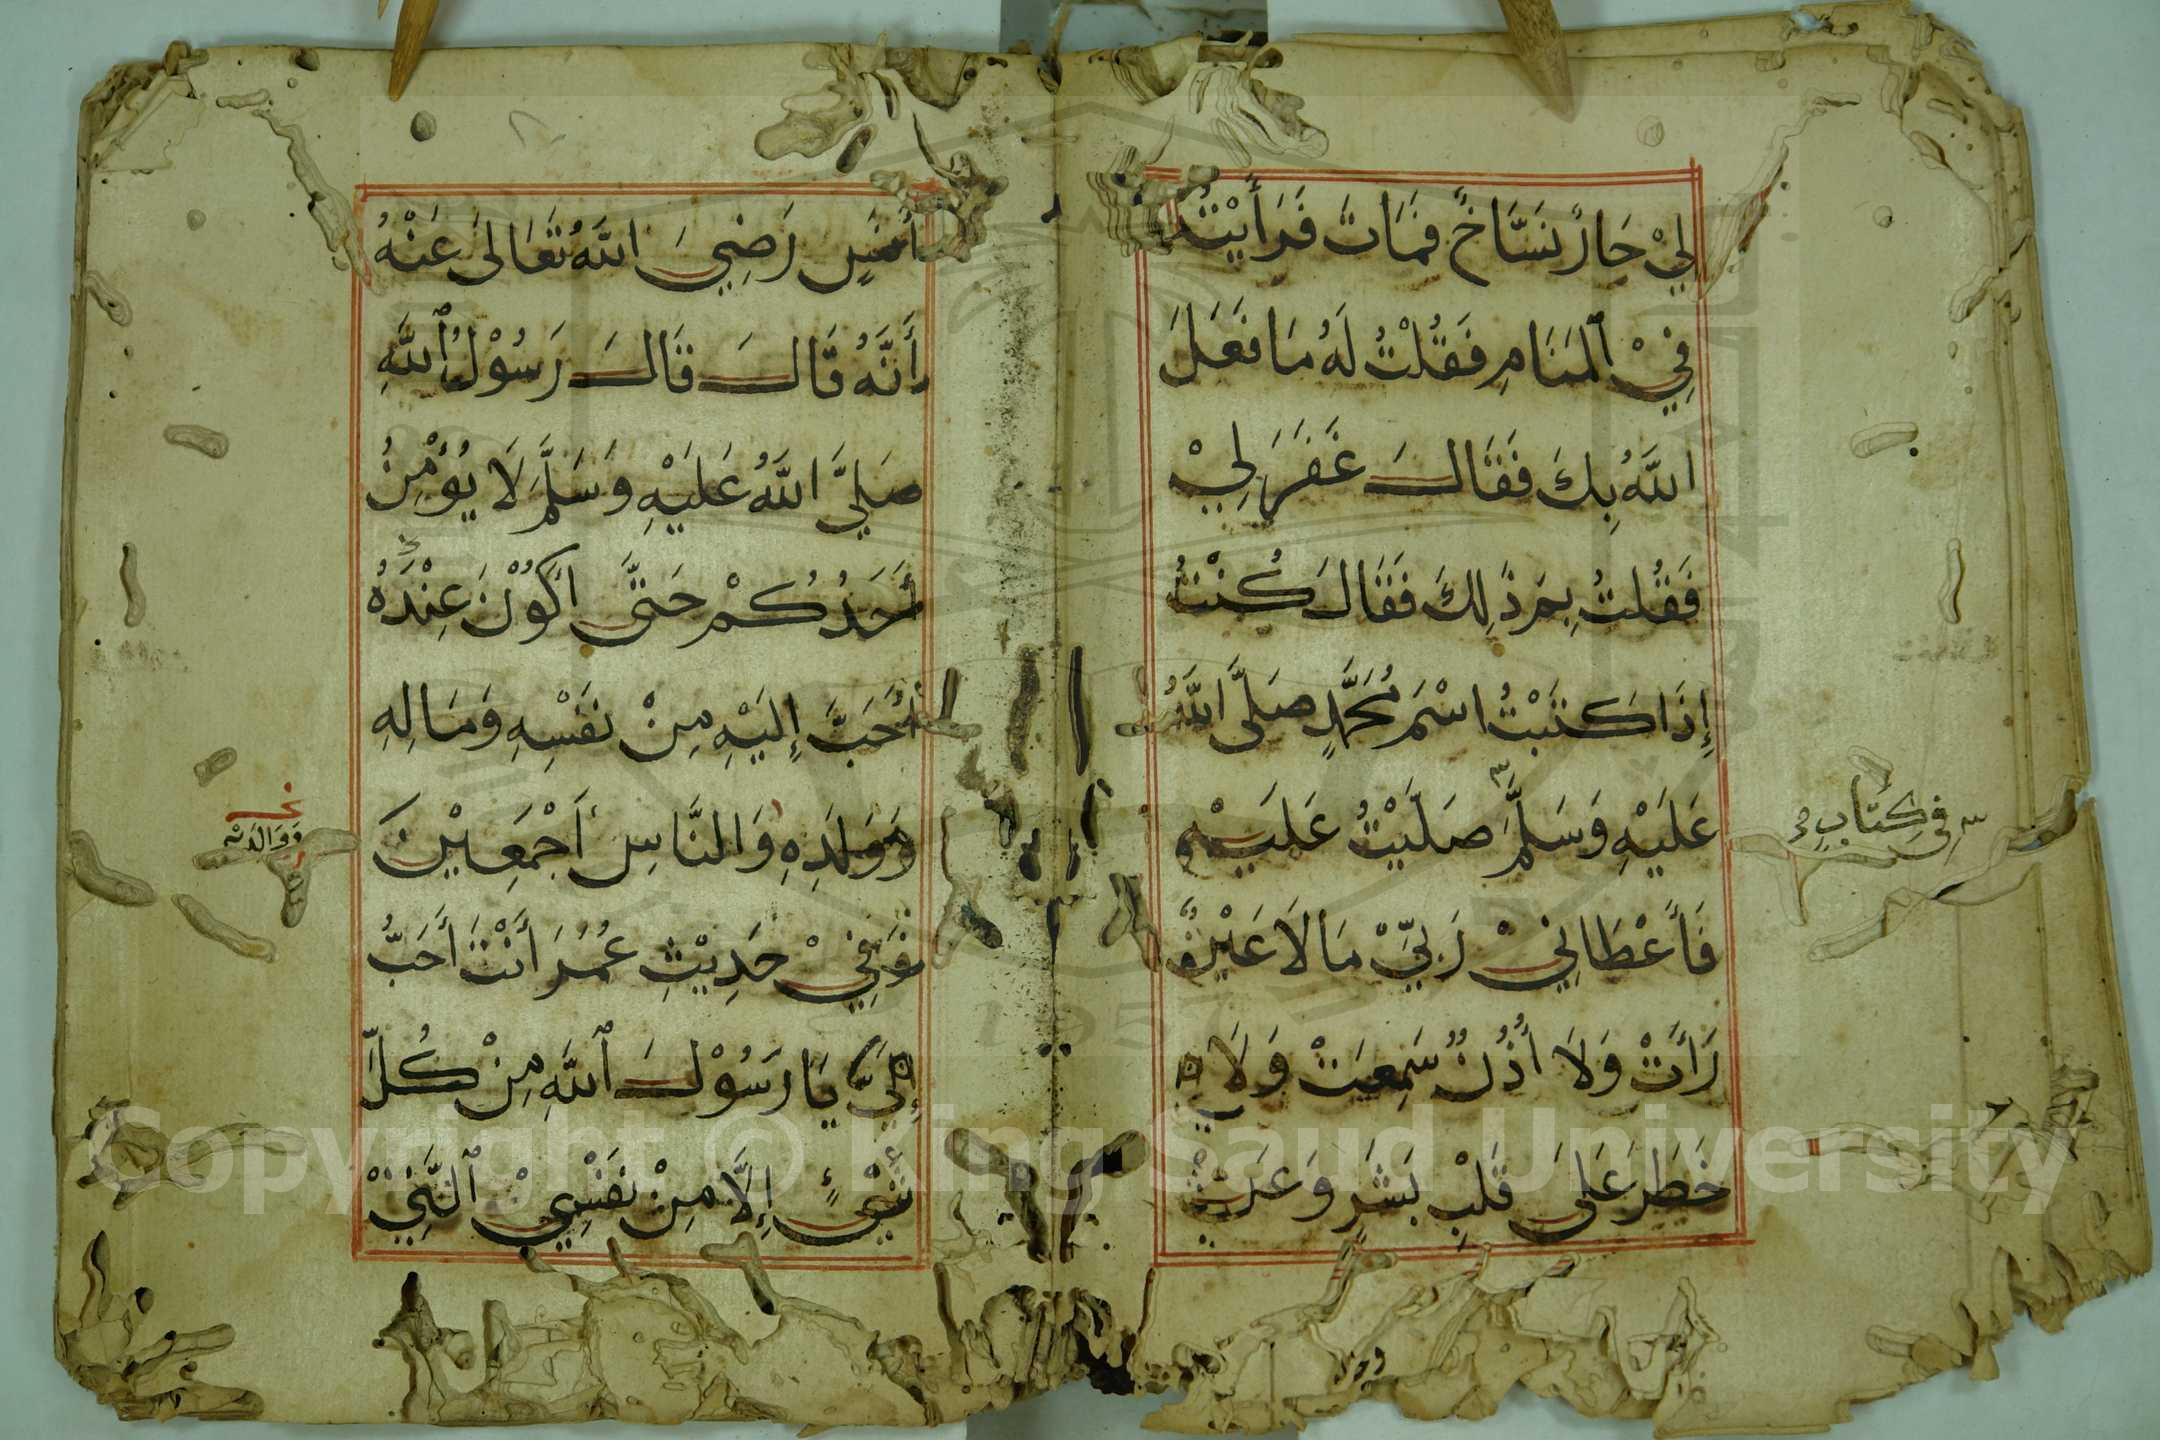 لِيْ جَارٌ نَسَّاخٌ فَمَاتَ فَرَأَيْتُهُ
فِيْ ٱلْمَنَامِ فَقُلْتُ لَهُ مَا فَعَلَ
اللَّهُ بِكَ فَقَالَ غَفَرَ لِيْ
فَقُلتُ بِمَ ذَٰلِكَ فَقَالَ كُنْتُ
إِذَا كَتَبْتُ اسْمَ مُحَمَّدٍ صَلَّى اللَّهُ
عَلَيْهِ وَسَلَّمَ صَلَّيْتُ عَلَيْهِ
فِي كِتَابٍ
فَأَعْطَانِيْ رَبِّيْ مَا لَا عَيْنٌ
رَأَتْ وَلَا أُذُنٌ سَمِعَتْ وَلَا
خَطَرَ عَلَى قَلْبِ بَشَرٍ وَعَنْ
وعن
أَنَسٍ رَضِيَ اللَّهُ تَعَالَى عَنْهُ
أَنَّهُ قَالَ قَالَ رَسُوْلُ ٱللَّهِ
صَلَّى اللَّهُ عَلَيْهِ وَسَلَّمَ لَا يُؤْمِنُ
أَحَدُكُمْ حَتَّى أَكُوْنَ عِنْدَهُ
أَحَبَّ إِلَيْهِ مِنْ نَفْسِهِ وَمَالِهِ
وَوَلَدِهِ وَالنَّاسِ أَجْمَعِيْنَ
وَوَالِدِهِ
وَفِيْ حَدِيْثِ عُمَرَ أَنْتَ أَحَبُّ
إِلَيَّ يَا رَسُوْلَ ٱللَّهِ مِنْ كُلِّ
شَيْءٍ إِلَّا مِنْ نَفْسِيْ ٱلَّتِيْ
Copyright © King Saud University
1957